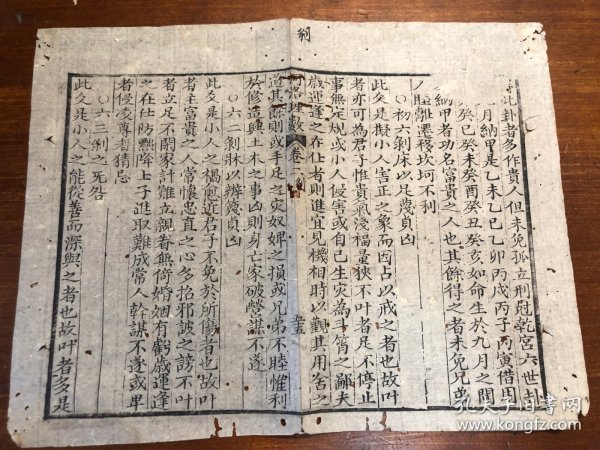 剝
此卦者多作貴人但未免孤立刑尅乾宮六世卦
月納甲是乙未乙巳乙卯丙戌丙子丙寅借用
癸巳癸未癸酉癸丑癸亥如命生於九月之間
納甲者功名富貴之人也其餘得之者未免兄弟
人睦離遷移坎坷不利
○初六剝床以足蔑貞凶
此爻是擬小人害正之象而因占以戒之者也故叶
者亦可為君子惟貴氣淺福量狹不叶者足不停止
事無定規或小人侵害或自己生灾為斗筲之鄙夫
歲運逢之在仕者則進宜見機相時以觀其用舍之
道其餘則或手足之灾奴婢之損或兄弟不睦惟利
於修造興土木之事凶則身亡家破營謀不遂
河洛理數 卷一
○六二剝牀以辨篾貞凶
此爻是小人之禍愈近君子不免於所傷者也故叶
者主富貴之人常懷忠直之心多招邪詖之謗不叶
者立足不闊家計難立親眷無倚婚姻有虧歲運逢
之在仕防黜降上子進取難成常人幹謀不遂或卑
者侵凌尊者猜忌
○六三剝之无咎
此爻是小人之能從善而深與之者也故叶者多是
孔夫子旧书网
www.kongfz.com